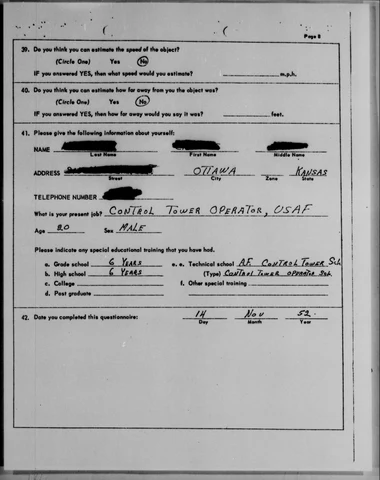 Page 8
39. Do you think you can estimate the speed of the object?
(Circle One) Yes No
IF you answered YES, then what speed would you estimate? m.p.h.
40. Do you think you can estimate how far away from you the object was?
(Circle One) Yes No
IF you answered YES, then how far away would you say it was? feet.
41. Please give the following information about yourself:
NAME
Last Name First Name Middle Name
ADDRESS OTTAWA KANSAS
Street City Zone State
TELEPHONE NUMBER
What is your present job? CONTROL TOWER OPERATOR, USAF
Age 20 Sex MALE
Please indicate any special educational training that you have had.
a. Grade school 6 YEARS e. Technical school A.F. CONTROL TOWER Sch
b. High school 6 YEARS (Type) CONTROL TOWER OPERATOR Sch.
c. College f. Other special training
d. Post graduate
42. Date you completed this questionnaire: 14 Nov 52.
Day Month Year